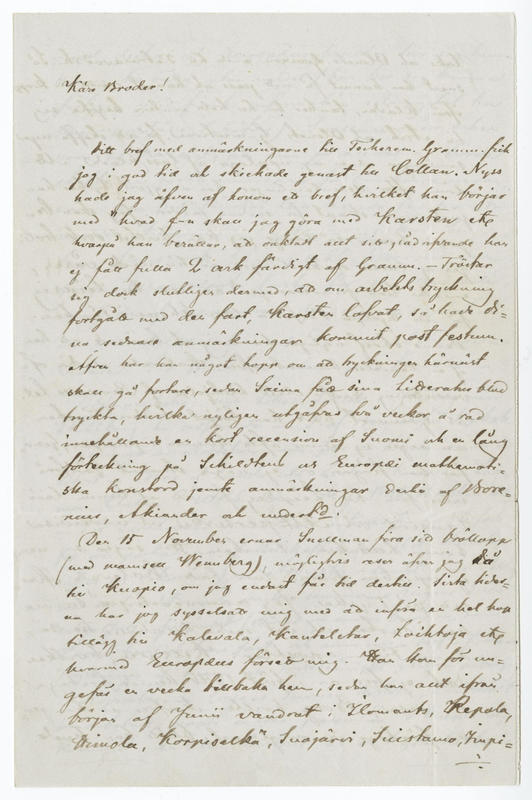 Käre Broder!
Ditt bref med anmärkningarne till Tscherem. Gramm. fick
jag i god tid och skickade genast till Collan. Nyss
hade jag äfven af honom ett bref, hvilket han börjar
med "hvad f-n skall jag göra med Karsten etc
hvarpå han berättar, att oaktadt allt sitt han
ej fått fulla 2 ark färdigt af Gramm. — Tröstar
sig dock slutligen dermed, att om arbetets tryckning
fortgått med den fart, Karsten lofvat, så hade di-
na sednare anmärkningar kommit post festum.
Äfven har han något hopp om att tryckningen härnäst
skall gå fortare, sedan Saima fått sina Litteratur blad
tryckta, hvilka nyligen utgåfvos två veckor å rad
innehållande en kort recension af Suomi och en lång
förteckning på Schildts och Europæi mathemati-
ska konstord jemte anmärkningar dertill af Bore-
nius, Akiander och undert.
Den 15 November ernar Snellman fira sitt bröllopp
(med mamsell Wennberg), möjligtvis reser äfven jag då
till Kuopio, om jag endast får tid dertill. Sista tider-
na har jag sysselsatt mig med att införa en hel hop
tillägg till Kalevala, Kanteletar, Loihtoja etc
hvarmed Europæus försett mig. Han kom för un-
gefär en vecka tillbaka hem, sedan han allt ifrån
början af Junii vandrat i Ilomants, Repola,
Himola, Korpiselkä, Suojärvi, Suistamo, Impi-